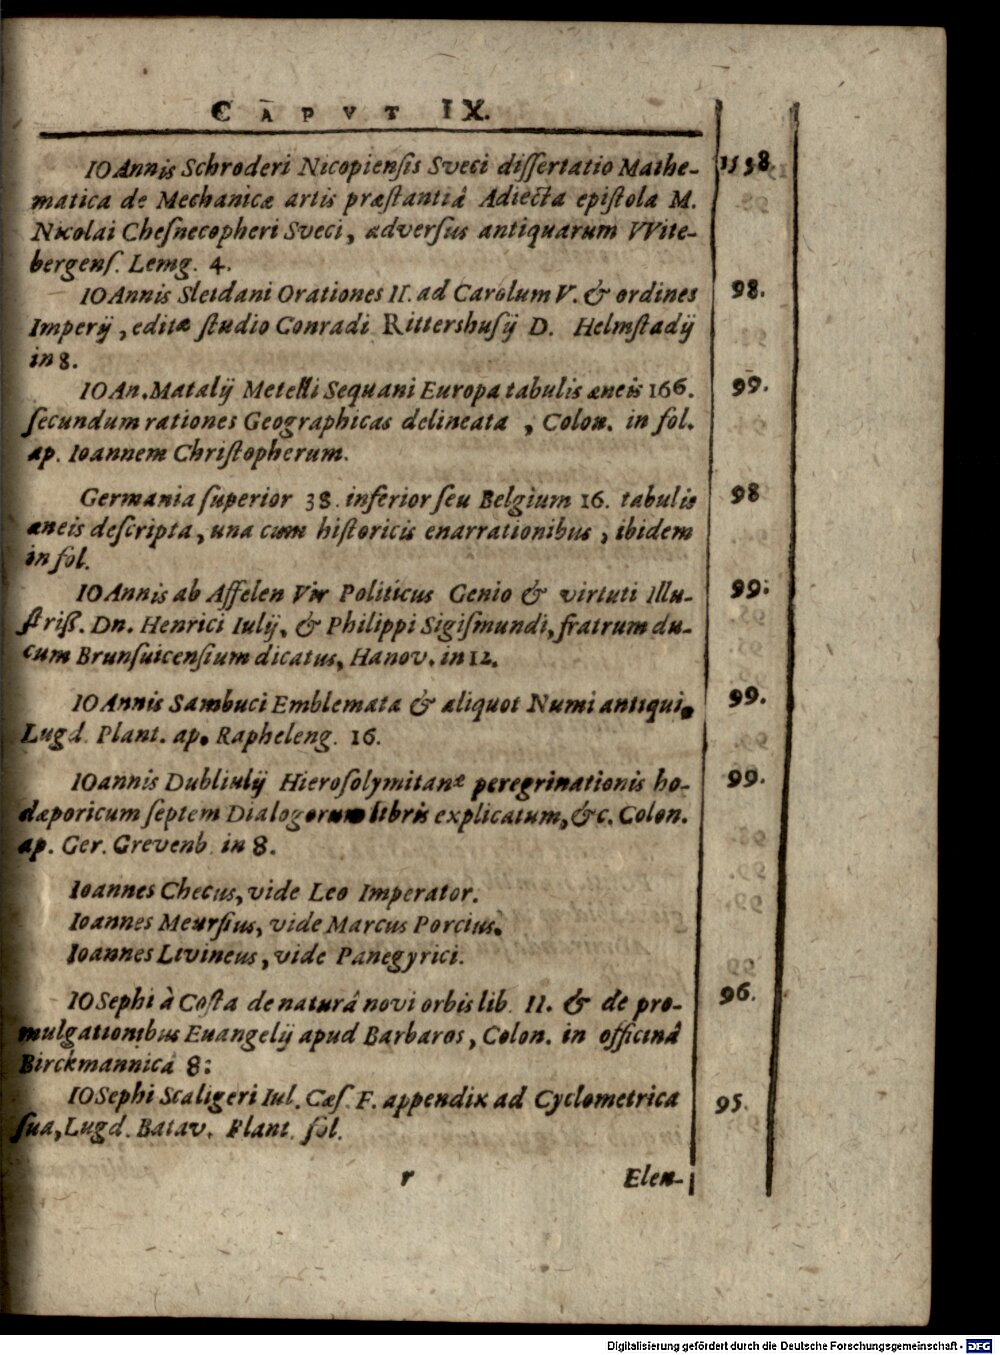 CAPVT IX.
IOAnnis Schroderi Nicopiensis Sveci dissertatio Mathe- 1598.
matica de Mechanicæ artis præstantiâ Adiecta epistola M.
Nicolai Chesnecopheri Sveci, adversus antiquarum VVite-
bergens. Lemg. 4.
IOAnnis Sleidani Orationes II. ad Carolum V. & ordines 98.
Imperij, editæ studio Conradi Rittershusij D. Helmstadij
in 8.
IOAn. Matalij Metelli Sequani Europa tabulis æneis 166. 99.
secundum rationes Geographicas delineata, Colon. in fol.
ap. Ioannem Christopherum.
Germania superior 38. inferior seu Belgium 16. tabulis 98
æneis descripta, una cum historicis enarrationibus, ibidem
in fol.
IOAnnis ab Affelen Vir Politicus Genio & virtuti Illu- 99.
striß. Dn. Henrici Iulij, & Philippi Sigismundi, fratrum du-
cum Brunsuicensium dicatus, Hanov. in 12.
IOAnnis Sambuci Emblemata & aliquot Numi antiqui. 99.
Lugd. Plant. ap. Rapheleng. 16.
IOannis Dubliulij Hierosolymitanæ peregrinationis ho- 99.
dæporicum septem Dialogorum libris explicatum, &c. Colon.
ap. Ger. Grevenb. in 8.
Ioannes Checus, vide Leo Imperator.
Ioannes Meursius, vide Marcus Porcius.
Ioannes Livineus, vide Panegyrici.
IOSephi à Costa de naturâ novi orbis lib. II. & de pro- 96.
mulgationibus Euangelij apud Barbaros, Colon. in officinâ
Birckmannicâ 8:
IOSephi Scaligeri Iul. Cæs. F. appendix ad Cyclometrica 95.
sua, Lugd. Batav. Plant. fol.
r Elen-
Digitalisierung gefördert durch die Deutsche Forschungsgemeinschaft - DFG